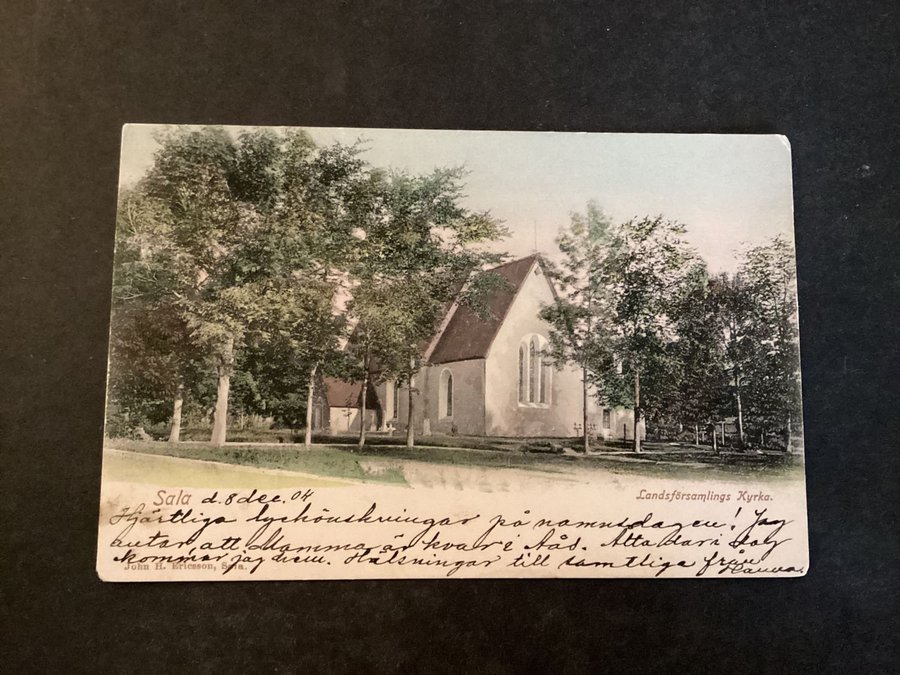 Sala d. 8 dec. 04
Landsförsamlings Kyrka.
Hjärtliga lyckönskningar på namnsdagen! Jag
antar att Mamma är kvar i Ås. Åtta dar i dag
kommer jag hem. Hälsningar till samtliga från
Hanna.
John H. Ericsson, Sala.